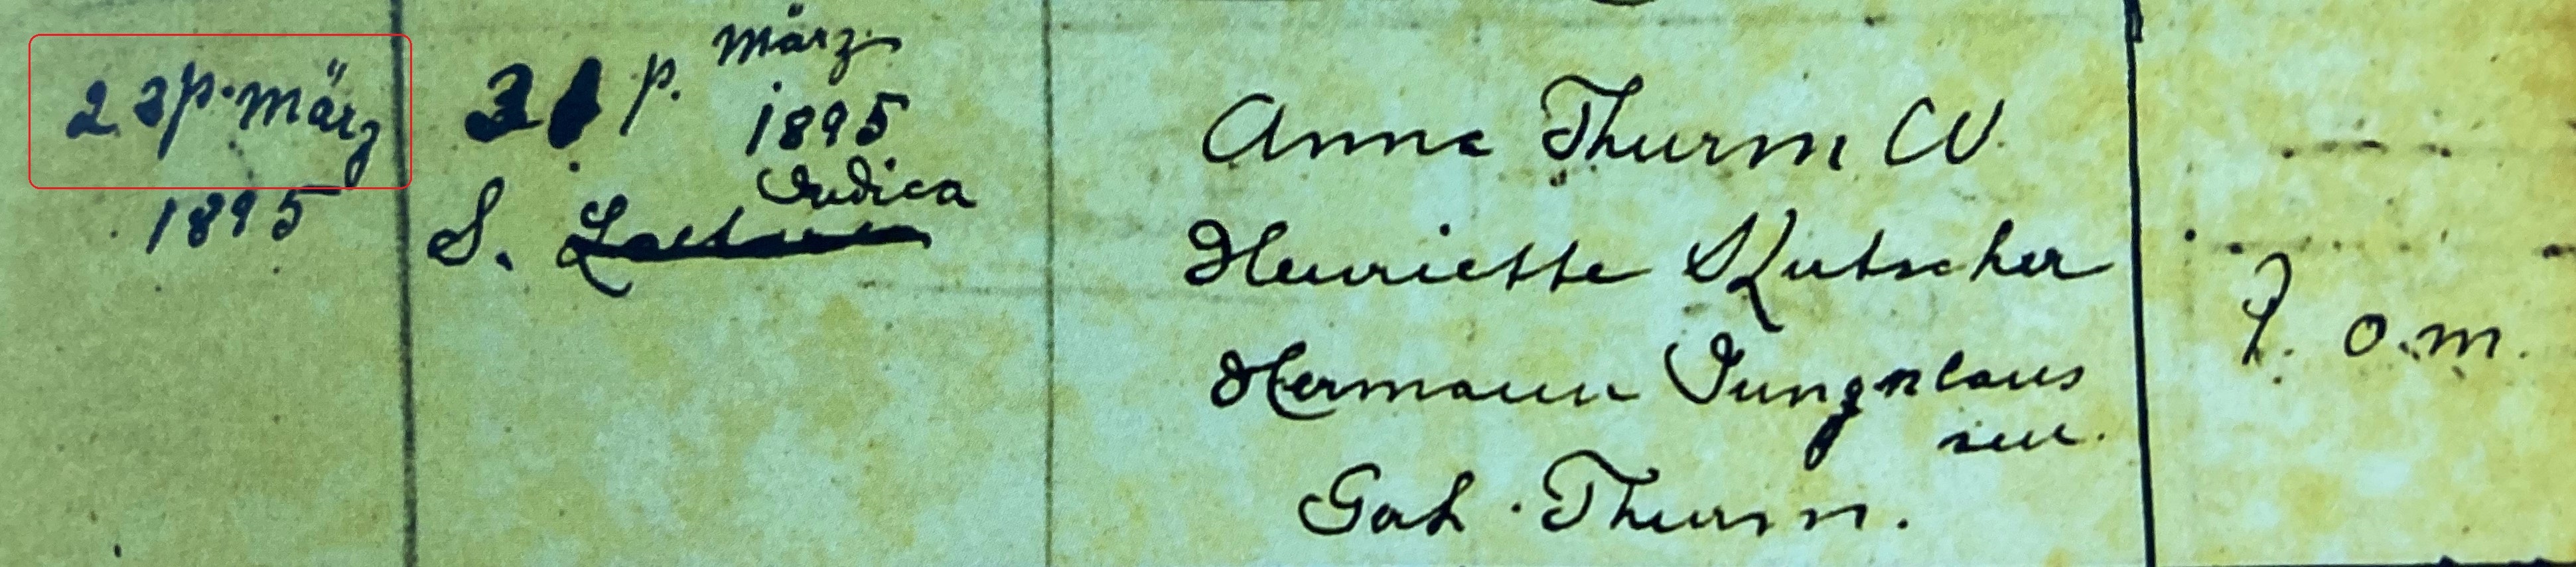 22 p. März
1895
31 p. März
1895
Judica
S. Laetare
Anna Thurm W.
Henriette Kutscher
Hermann Jungnclaus
sen.
Joh. Thurm.
J. o. m.